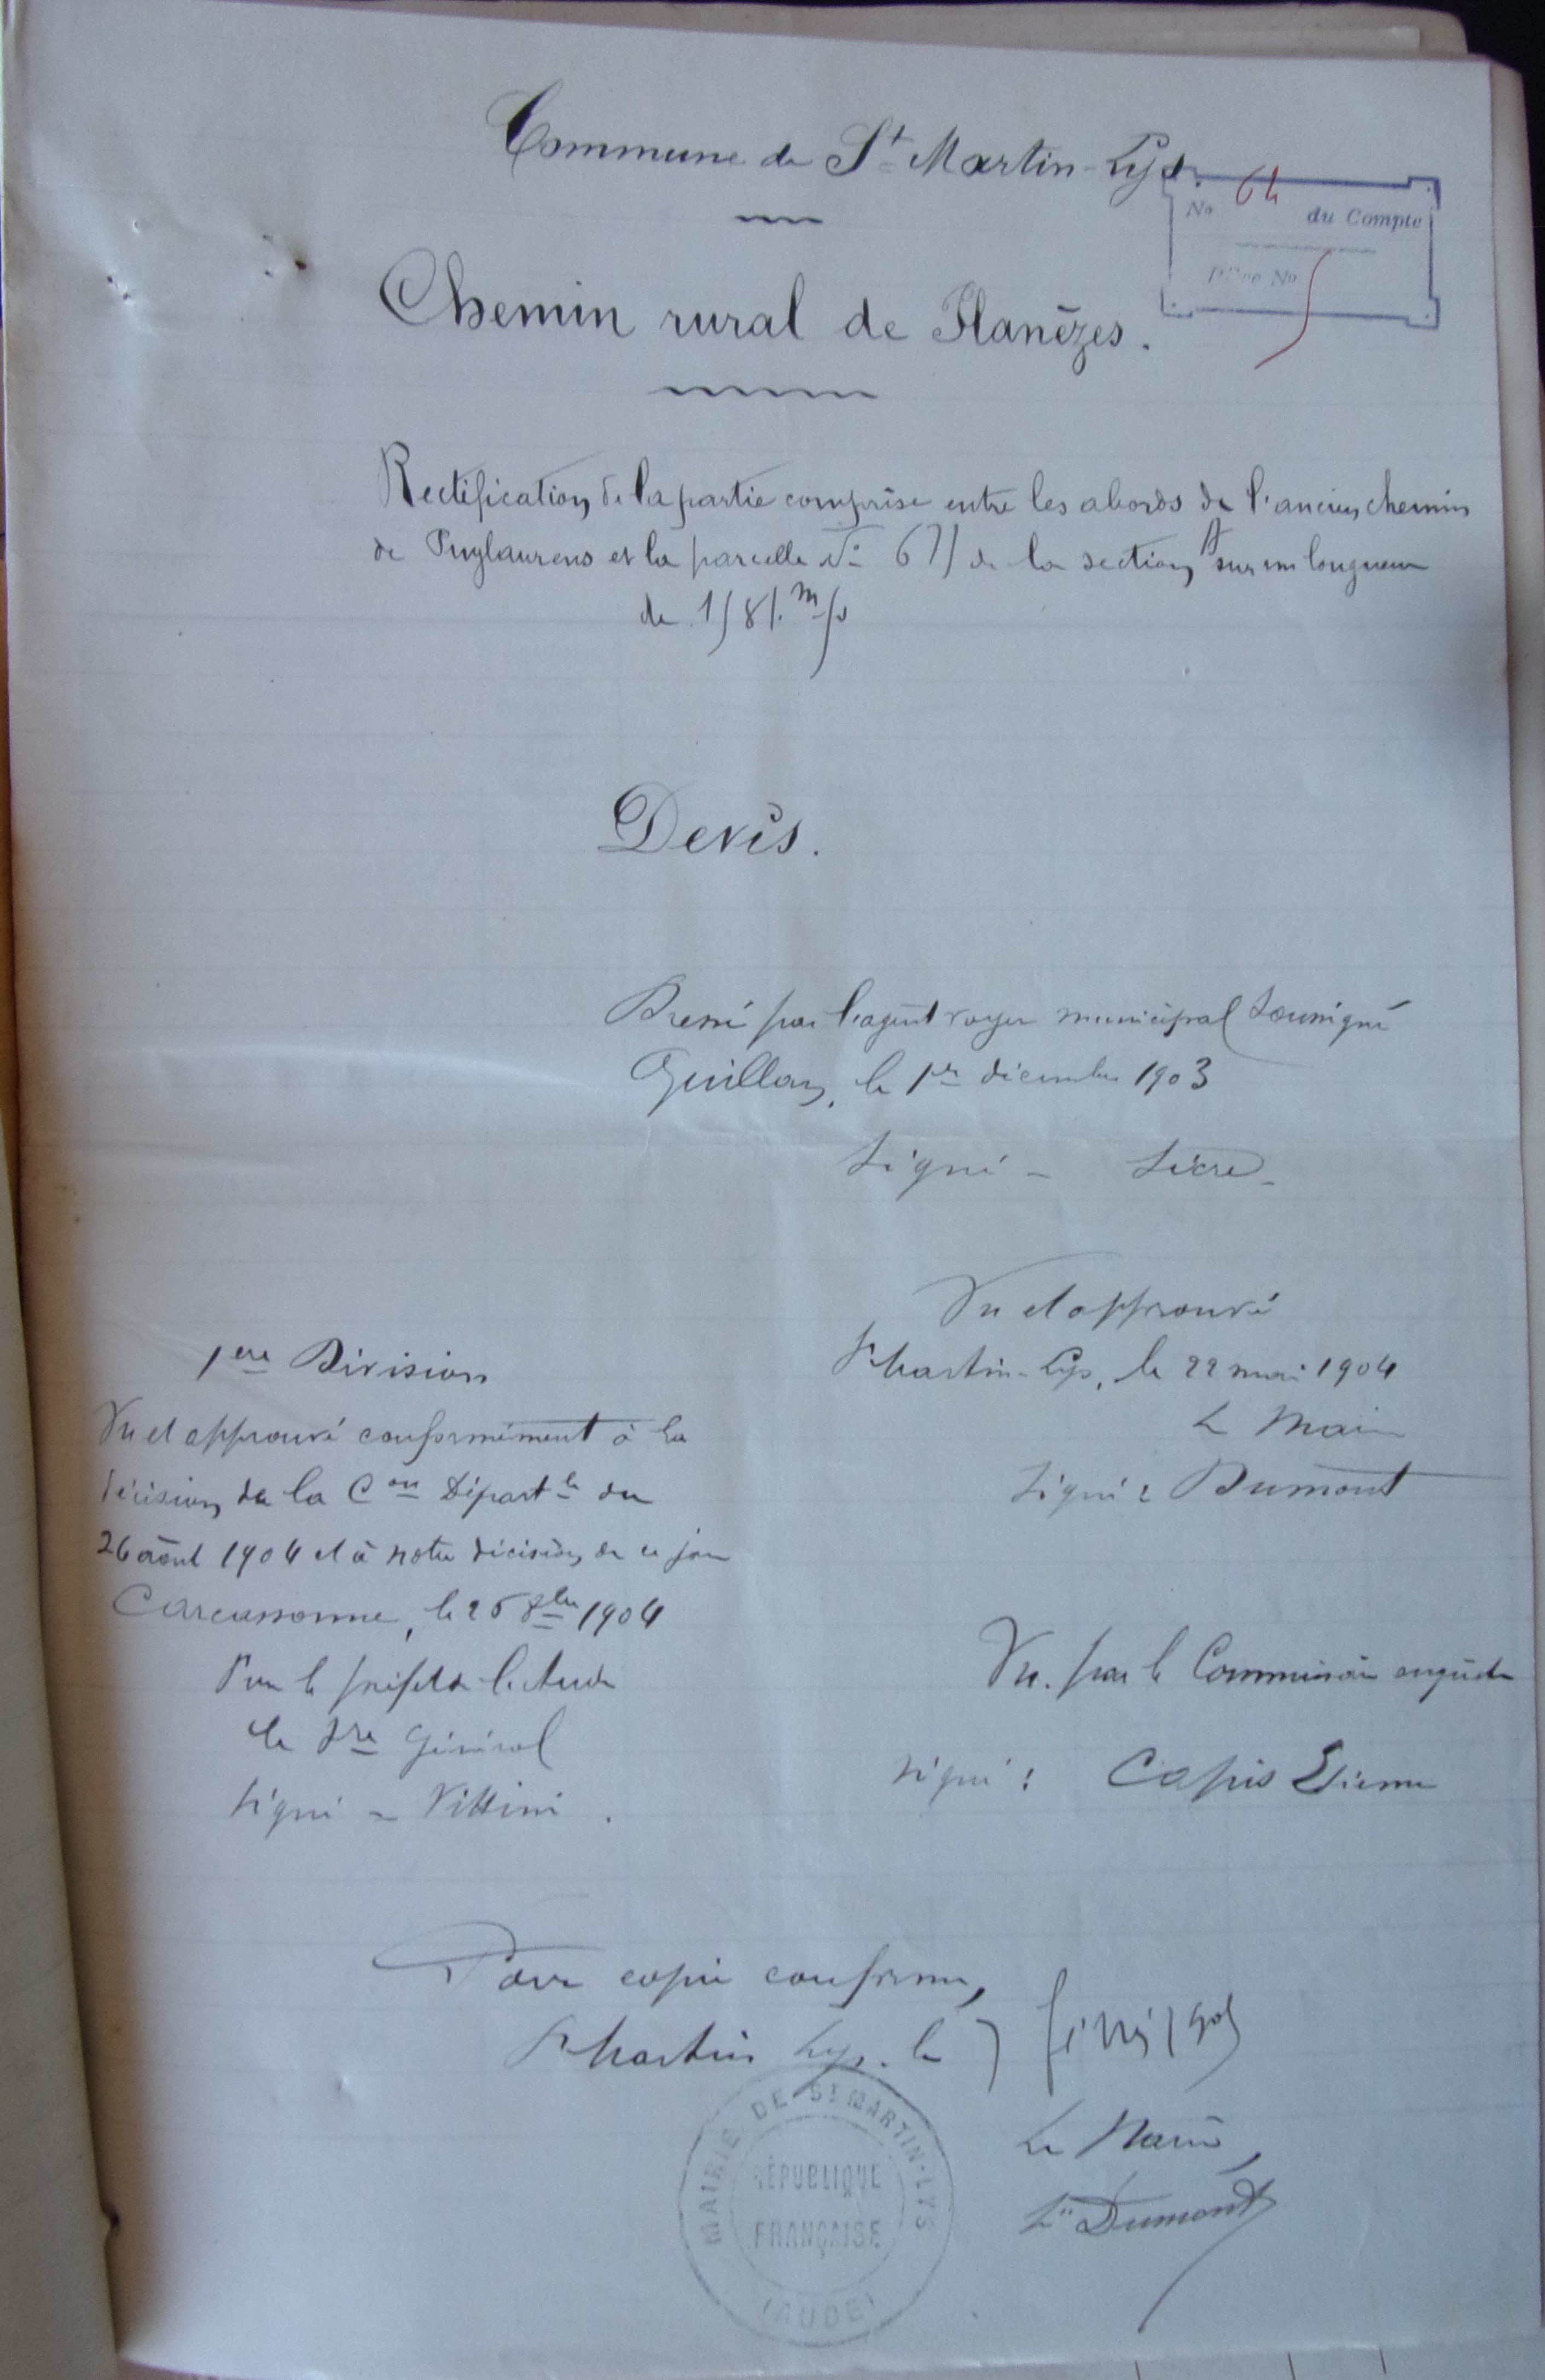 Commune de St Martin-Lys.
No 64 du Compte
Pièce No
Chemin rural de Planèzes.
Rectification de la partie comprise entre les abords de l'ancien chemin
de Puylaurens et la parcelle N° 671 de la section A sur une longueur
de
Devis.
Dressé par l'agent voyer municipal soussigné
le 1er décembre 1903
Signé -
Vu et approuvé
St Martin-Lys, le 22 mai 1904
Le Maire
Signé : Dumont
1ère Division
Vu et approuvé conformément à la
décision de la Con Départle du
26 août 1904 et à notre décision de ce jour
Carcassonne, le 26 8bre 1904
Pour le préfet de l'Aude
le Sre Général
Signé - Vittini.
Vu par le Commissaire enquêteur
signé : Capis Etienne
Pour copie conforme,
St Martin Lys. le 7
Le Maire,
Dumont
MAIRIE DE ST MARTIN-LYS
RÉPUBLIQUE
FRANÇAISE
(AUDE)